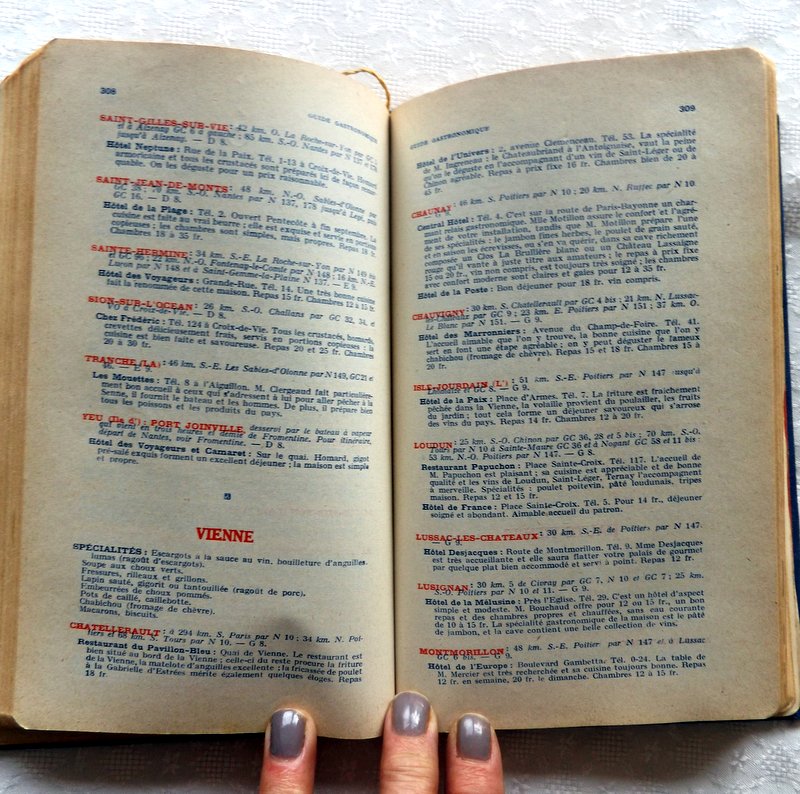 308
GUIDE GASTRONOMIQUE
SAINT-GILLES-SUR-VIE : 42 km. O. La Roche-sur-Yon par GC
et à Aizenay GC 6 à gauche ; 85 km. S.-O. Nantes par N 137 et
jusqu'à Aizenay. — D 8.
Hôtel Neptune : Rue de la Paix. Tél. 1-13 à Croix-de-Vie. Homard
armoricaine et tous les crustacés sont préparés ici de façon
quable. On les déguste pour un prix raisonnable.
SAINT-JEAN-DE-MONTS : 48 km. N.-O. Sables-d'Olonne par
GC 38 ; 70 km. S.-O. Nantes par N 137, 178 jusqu'à Legé, puis
GC 16. — D 8.
Hôtel de la Plage : Tél. 2. Ouvert Pentecôte à fin septembre. La
cuisine est faite au vrai beurre ; elle est exquise et servie en portions
copieuses ; les chambres sont simples, mais propres. Repas 18 fr.
Chambres 18 à 35 fr.
SAINTE-HERMINE : 34 km. S.-E. La Roche-sur-Yon par N 149 bis
et GC ; 22 km. N.-O. Fontenay-le-Comte par N 148 ; 16 km. N.-E.
Luçon par N 148 et à Sainte-Gemme-la-Plaine N 137. — E 8.
Hôtel des Voyageurs : Grande-Rue. Tél. 14. Une très bonne cuisine
fait la renommée de cette maison. Repas 15 fr. Chambres 12 à 15 fr.
SION-SUR-L'OCEAN : 26 km. S.-O. Challans par GC 32, 54, et
VO à Croix-de-Vie. — D 8.
Chez Frédéric : Tél. 124 à Croix-de-Vie. Tous les crustacés, homards,
crevettes délicieusement frais, servis en portions copieuses ; la
cuisine est bien faite et savoureuse. Repas 20 et 25 fr. Chambres
20 à 30 fr.
TRANCHE (LA) : 46 km. S.-E. Les Sables-d'Olonne par N 149, GC 21 et
46. — E 9.
Les Mouettes : Tél. 8 à l'Aiguillon. M. Clergeaud fait particulière-
ment bon accueil à ceux qui s'adressent à lui pour aller pêcher à la
Senne, il fournit le bateau et les hommes. De plus, il prépare bien
tous les poissons et les produits du pays.
YEU (Ile d') : PORT JOINVILLE, desservi par le bateau à vapeur
qui vient en trois heures et demie de Fromentine. Pour itinéraire,
départ de Nantes, voir Fromentine. — D 8.
Hôtel des Voyageurs et Camaret : Sur le quai. Homard, gigot
pré-salé exquis forment un excellent déjeuner ; la maison est simple
et propre.
VIENNE
SPÉCIALITÉS : Escargots à la sauce au vin, bouilleture d'anguilles,
lumas (ragoût d'escargots).
Soupe aux choux verts.
Fressures, rilleaux et grillons.
Lapin sauté, gigorit ou tantouillée (ragoût de porc).
Embeurrées de choux pommés.
Pots de caillé, caillebotte.
Chabichou (fromage de chèvre).
Macarons, biscuits.
CHATELLERAULT : à 294 km. S. Paris par N 10 ; 34 km. N. Poi-
tiers et 68 km. S. Tours par N 10. — G 8.
Restaurant du Pavillon-Bleu : Quai de Vienne. Le restaurant est
bien situé au bord de la Vienne ; celle-ci du reste procure la friture
de la Vienne, la matelote d'anguilles excellente ; la fricassée de poulet
à la Gabrielle d'Estrées mérite également quelques éloges. Repas
18 fr.
309
GUIDE GASTRONOMIQUE
Hôtel de l'Univers : 2, avenue Clemenceau. Tél. 53. La spécialité
de M. Jugreneau : le Chateaubriand à l'Antoignaise, vaut la peine
qu'on le déguste en l'accompagnant d'un vin de Saint-Léger ou de
Chinon agréable. Repas à prix fixe 16 fr. Chambres bien de 20 à
45 fr.
CHAUNAY : 46 km. S. Poitiers par N 10 ; 20 km. N. Ruffec par N 10.
Central Hôtel : Tél. 4. C'est sur la route de Paris-Bayonne un char-
mant relais gastronomique. Mlle Motillon assure le confort et l'agré-
ment de votre installation, tandis que M. Motillon prépare l'une
de ses spécialités : le jambon fines herbes, le poulet de grain sauté,
et en saison les écrevisses, ou s'en va quérir, dans sa cave richement
composée un Clos La Brullière blanc ou un Château Lassaigne
rouge qu'il vante à juste titre aux amateurs ; le repas à prix fixe
15 ou 20 fr., vin non compris, est toujours très soigné ; les chambres
avec confort moderne sont claires et gaies pour 12 à 35 fr.
Hôtel de la Poste : Bon déjeuner pour 18 fr. vin compris.
CHAUVIGNY : 30 km. S. Chatellerault par GC 4 bis ; 21 km. N. Lussac-
par GC 9 ; 23 km. E. Poitiers par N 151 ; 37 km. O.
Le Blanc par N 151. — G 9.
Hôtel des Marronniers : Avenue du Champ-de-Foire. Tél. 41.
L'accueil aimable que l'on y trouve, la bonne cuisine que l'on y
sert en font une étape agréable ; on y peut déguster le fameux
chabichou (fromage de chèvre). Repas 15 et 18 fr. Chambres 15 à
20 fr.
ISLE-JOURDAIN (L') : 51 km. S.-E. Poitiers par N 147 jusqu'à
GC 8. — G 9.
Hôtel de la Paix : Place d'Armes. Tél. 7. La friture est fraîchement
pêchée dans la Vienne, la volaille provient du poulailler, les fruits
du jardin ; tout cela forme un déjeuner savoureux qui s'arrose
des vins du pays. Repas 14 fr. Chambres 12 à 20 fr.
LOUDUN : 25 km. S.-O. Chinon par GC 36, 28 et 5 bis ; 70 km. S.-O.
Tours par N 10 à Sainte-Maure GC 36 et à Nogant GC 58 et 11 bis ;
53 km. N.-O. Poitiers par N 147. — G 8.
Restaurant Papuchon : Place Sainte-Croix. Tél. 117. L'accueil de
M. Papuchon est plaisant ; sa cuisine est appréciable et de bonne
qualité et les vins de Loudun, Saint-Léger, Ternay l'accompagnent
à merveille. Spécialités : poulet poitevin, pâté loudunais, tripes
maison. Repas 12 et 15 fr.
Hôtel de France : Place Sainte-Croix. Tél. 5. Pour 14 fr., déjeuner
soigné et abondant. Aimable accueil du patron.
LUSSAC-LES-CHATEAUX : 30 km. S.-E. de Poitiers par N 147.
— G 9.
Hôtel Desjacques : Route de Montmorillon. Tél. 9. Mme Desjacques
est très accueillante et elle saura flatter votre palais de gourmet
par quelque plat bien accommodé et servi à point. Repas 12 fr.
LUSIGNAN : 30 km. S de Civray par GC 7, N 10 et GC 7 ; 25 km.
S.-O. Poitiers par N 10 et 11. — G 9.
Hôtel de la Mélusine : Près l'Eglise. Tél. 29. C'est un hôtel d'aspect
simple et modeste. M. Bouchaud offre pour 12 ou 15 fr., un bon
repas et des chambres propres et chauffées, sans eau courante
de 10 à 15 fr. La spécialité gastronomique de la maison est le pâté
de jambon, et la cave contient une belle collection de vins.
MONTMORILLON : 48 km. S.-E. Poitiers par N 147 et à Lussac
GC 6 bis. — G 9.
Hôtel de l'Europe : Boulevard Gambetta. Tél. 0-24. La table de
M. Mercier est très recherchée et sa cuisine toujours bonne. Repas
12 fr. en semaine, 20 fr. le dimanche. Chambres 12 à 15 fr.